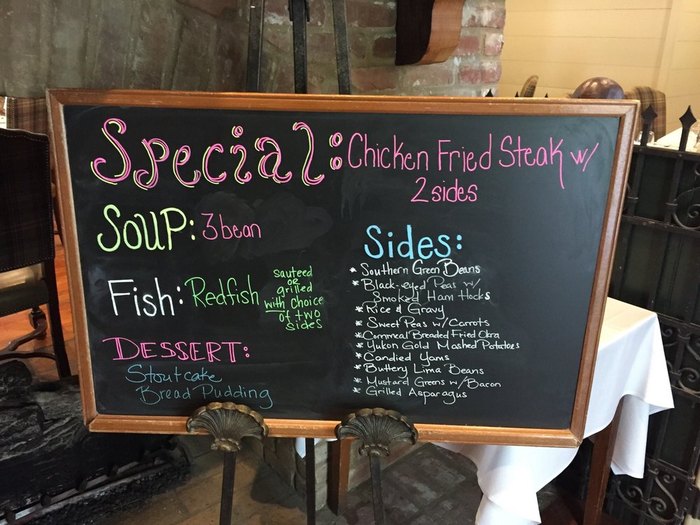 Special: Chicken Fried Steak w/
2 sides
Soup: 3 bean
Fish: Redfish
sauteed
or
grilled
with choice
of two
sides
Dessert:
Stoutcake
Bread Pudding
Sides:
* Southern Green Beans
* Black-eyed Peas w/
Smoked Ham Hocks
* Rice & Gravy
* Sweet Peas w/ Carrots
* Cornmeal Breaded Fried Okra
* Yukon Gold Mashed Potatoes
* Candied Yams
* Buttery Lima Beans
* Mustard Greens w/ Bacon
* Grilled Asparagus